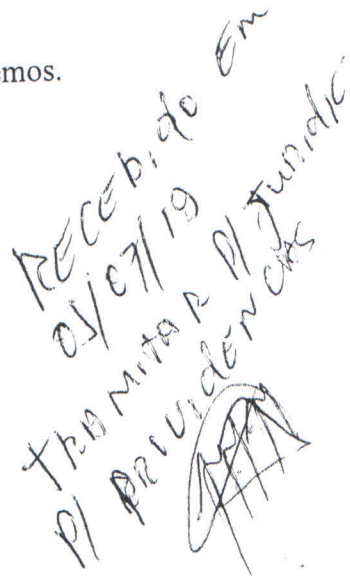 emos.
RECEbido Em
03/07/19
TRAMitAR P/ JuRidic
P/ PROVidENCIAS